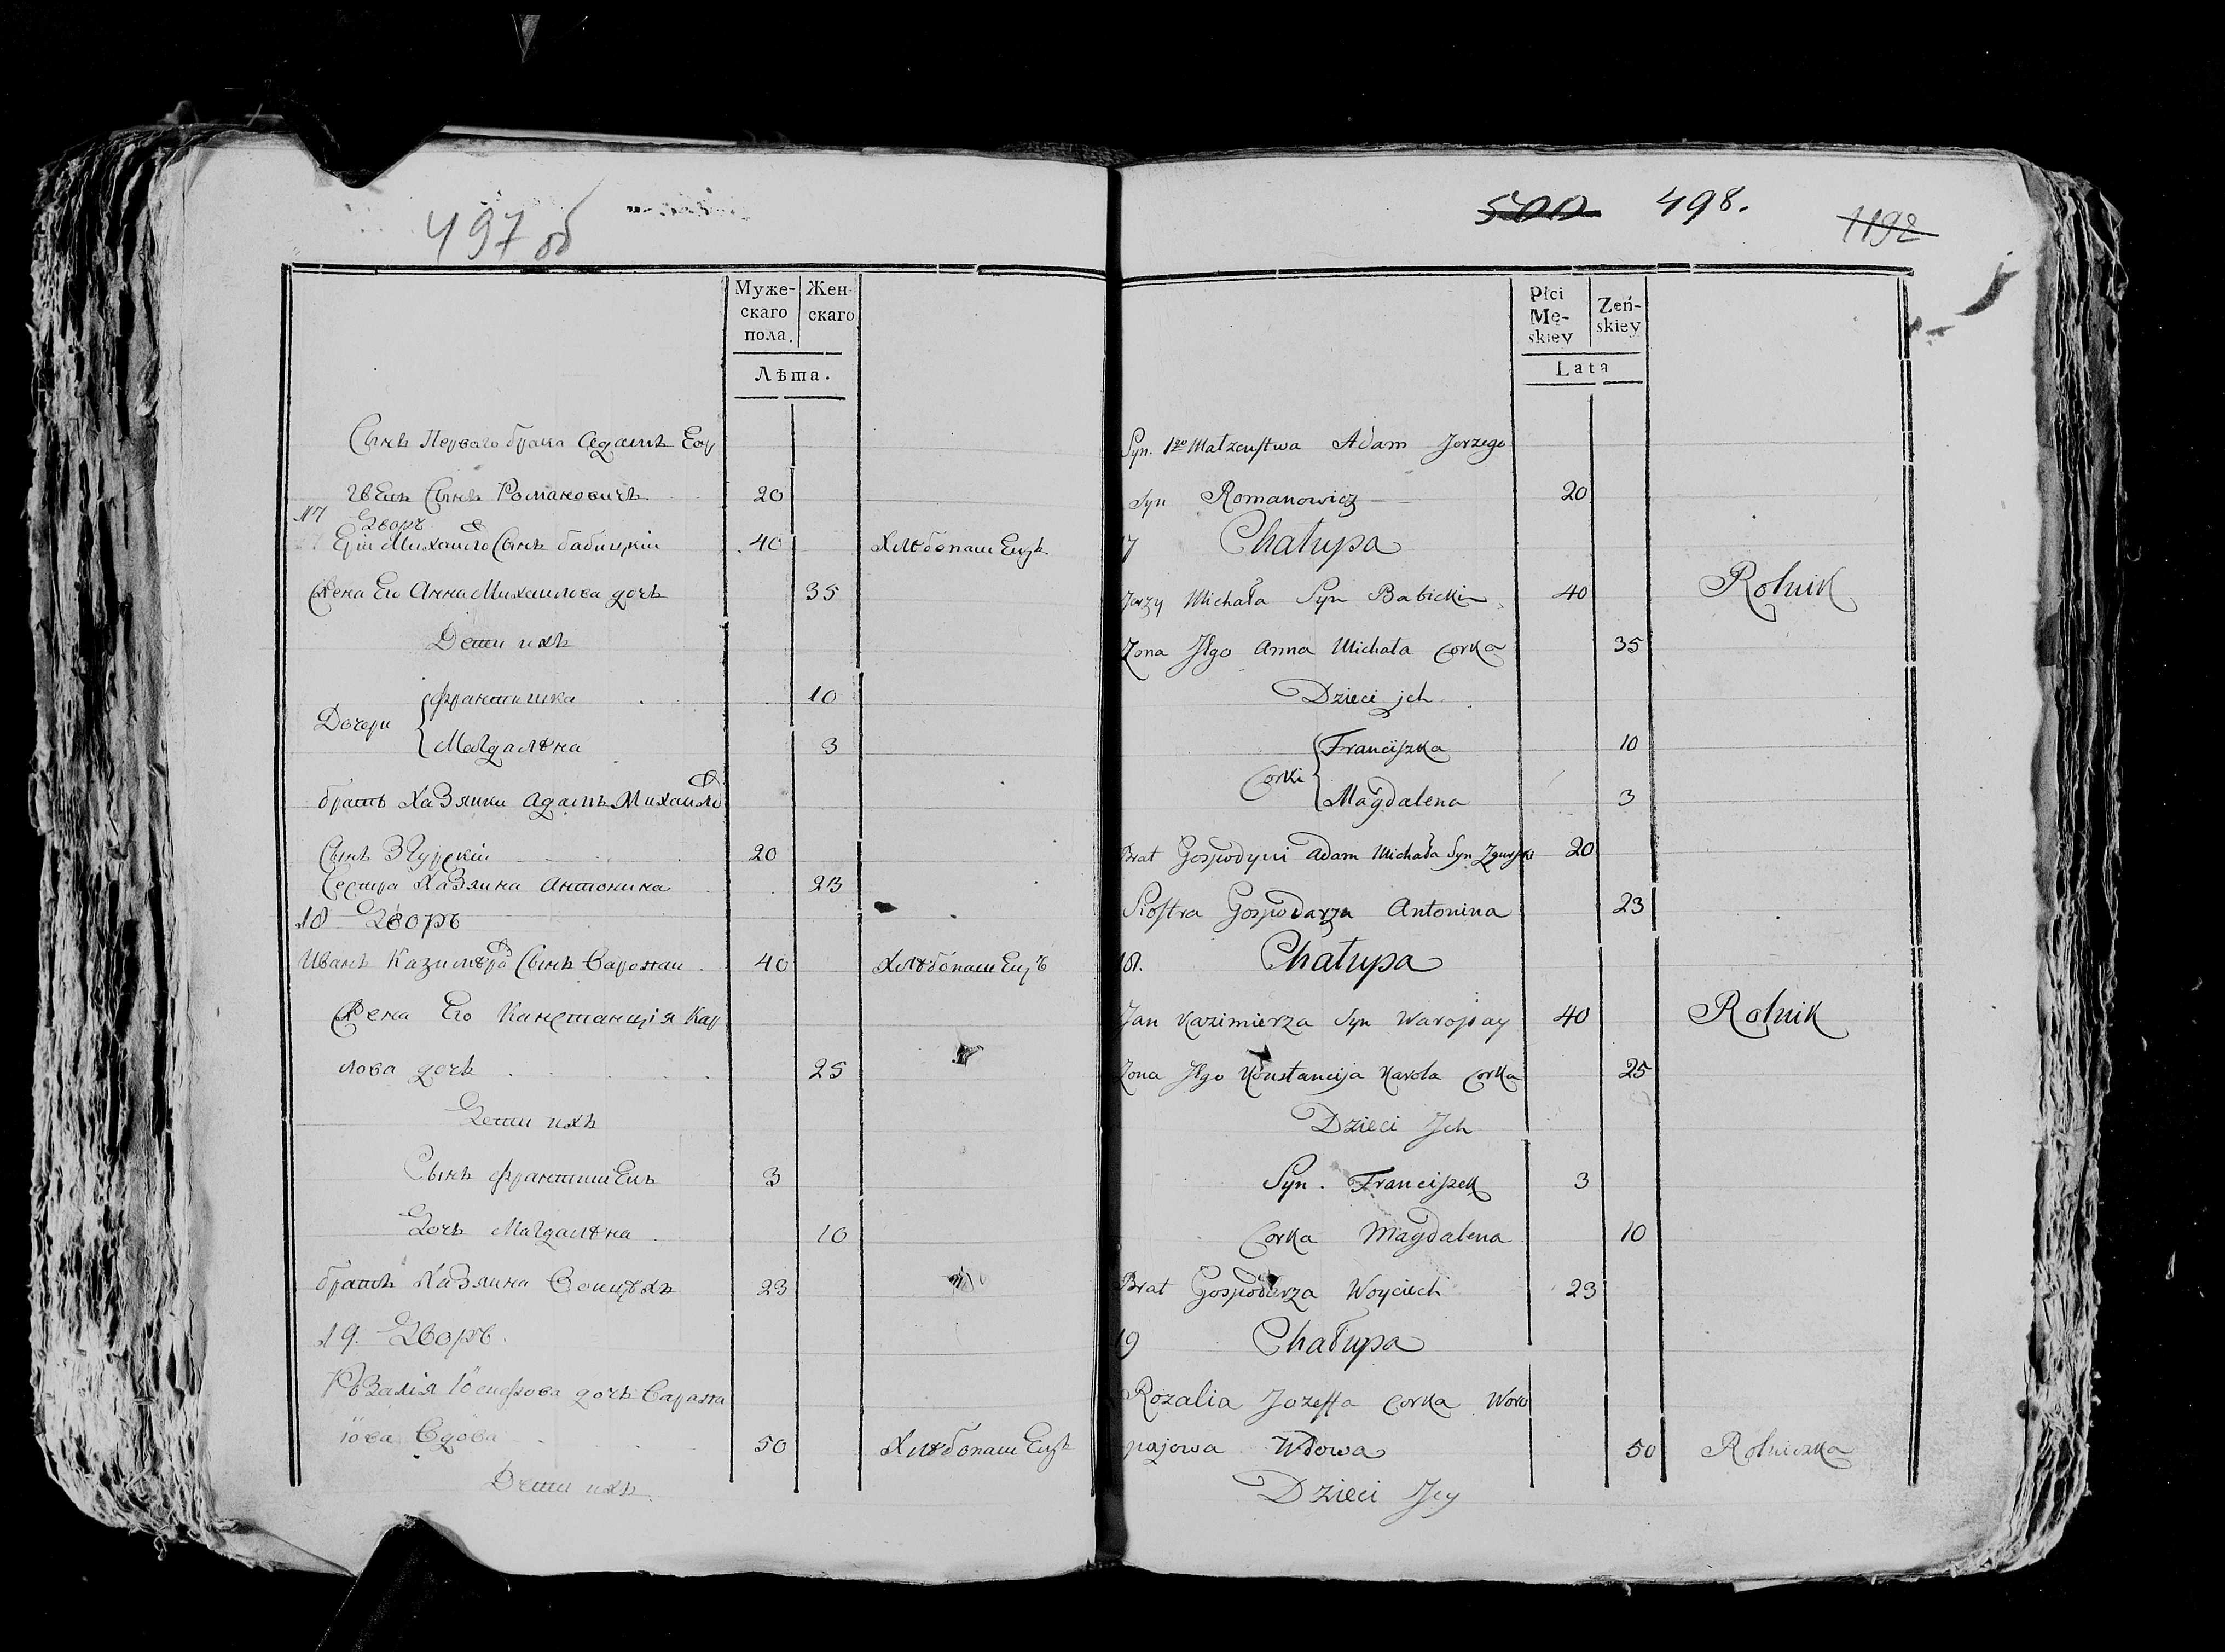 497 об
Муже-
скаго
пола.
Жен-
скаго
Лѣта.
Сынъ Перваго брака Адамъ Еор
гвецъ Сынъ Романовичъ 20
17 Дворъ
Ерій Михайло Сынъ бабицкій 40 Хлѣбопашецъ
Жена Его Анна Михайлова дочь 35
Дети ихъ
Дочери
Франтишка 10
Магдалѣна 3
братъ Хазяики Адамъ Михайло
Сынъ Згурскій 20
Сестра Хазяина Антонина 23
18 Дворъ
Иванъ Казимѣра Сынъ Варопаи 40 Хлѣбопашецъ
Жена Его Канстанція Кар
лова дочь 25
Дети ихъ
Сынъ Франтишекъ 3
Дочь Магдалѣна 10
братъ Хазяина Воицѣхъ 23
19. Дворъ.
Розалія Юсифова дочь Варапа
іова Вдова 50 Хлѣбопашецъ
Дети ихъ
500 498.
1192
Płci
Mę-
skiey
Zeń-
skiey
Lata
Syn. 1go Małzenstwa Adam Jerzego
Syn Romanowicz 20
17 Chałupa
Jerzy Michała Syn Babicki 40 Rolnik
Zona Jego Anna Michała Corka 35
Dzieci jch
Corki
Franciszka 10
Magdalena 3
Brat Gospodyni Adam Michała Syn Zgurski 20
Siostra Gospodarza Antonina 23
18. Chałupa
Jan Kazimierza Syn Waropay 40 Rolnik
Zona Jego Konstancija Karola Corka 25
Dzieci Jch
Syn. Franciszek 3
Corka Magdalena 10
Brat Gospodarza Woyciech 23
19 Chałupa
Rozalia Jozeffa Corka Woro
pajowa Wdowa 50 Rolniczka
Dzieci Jey